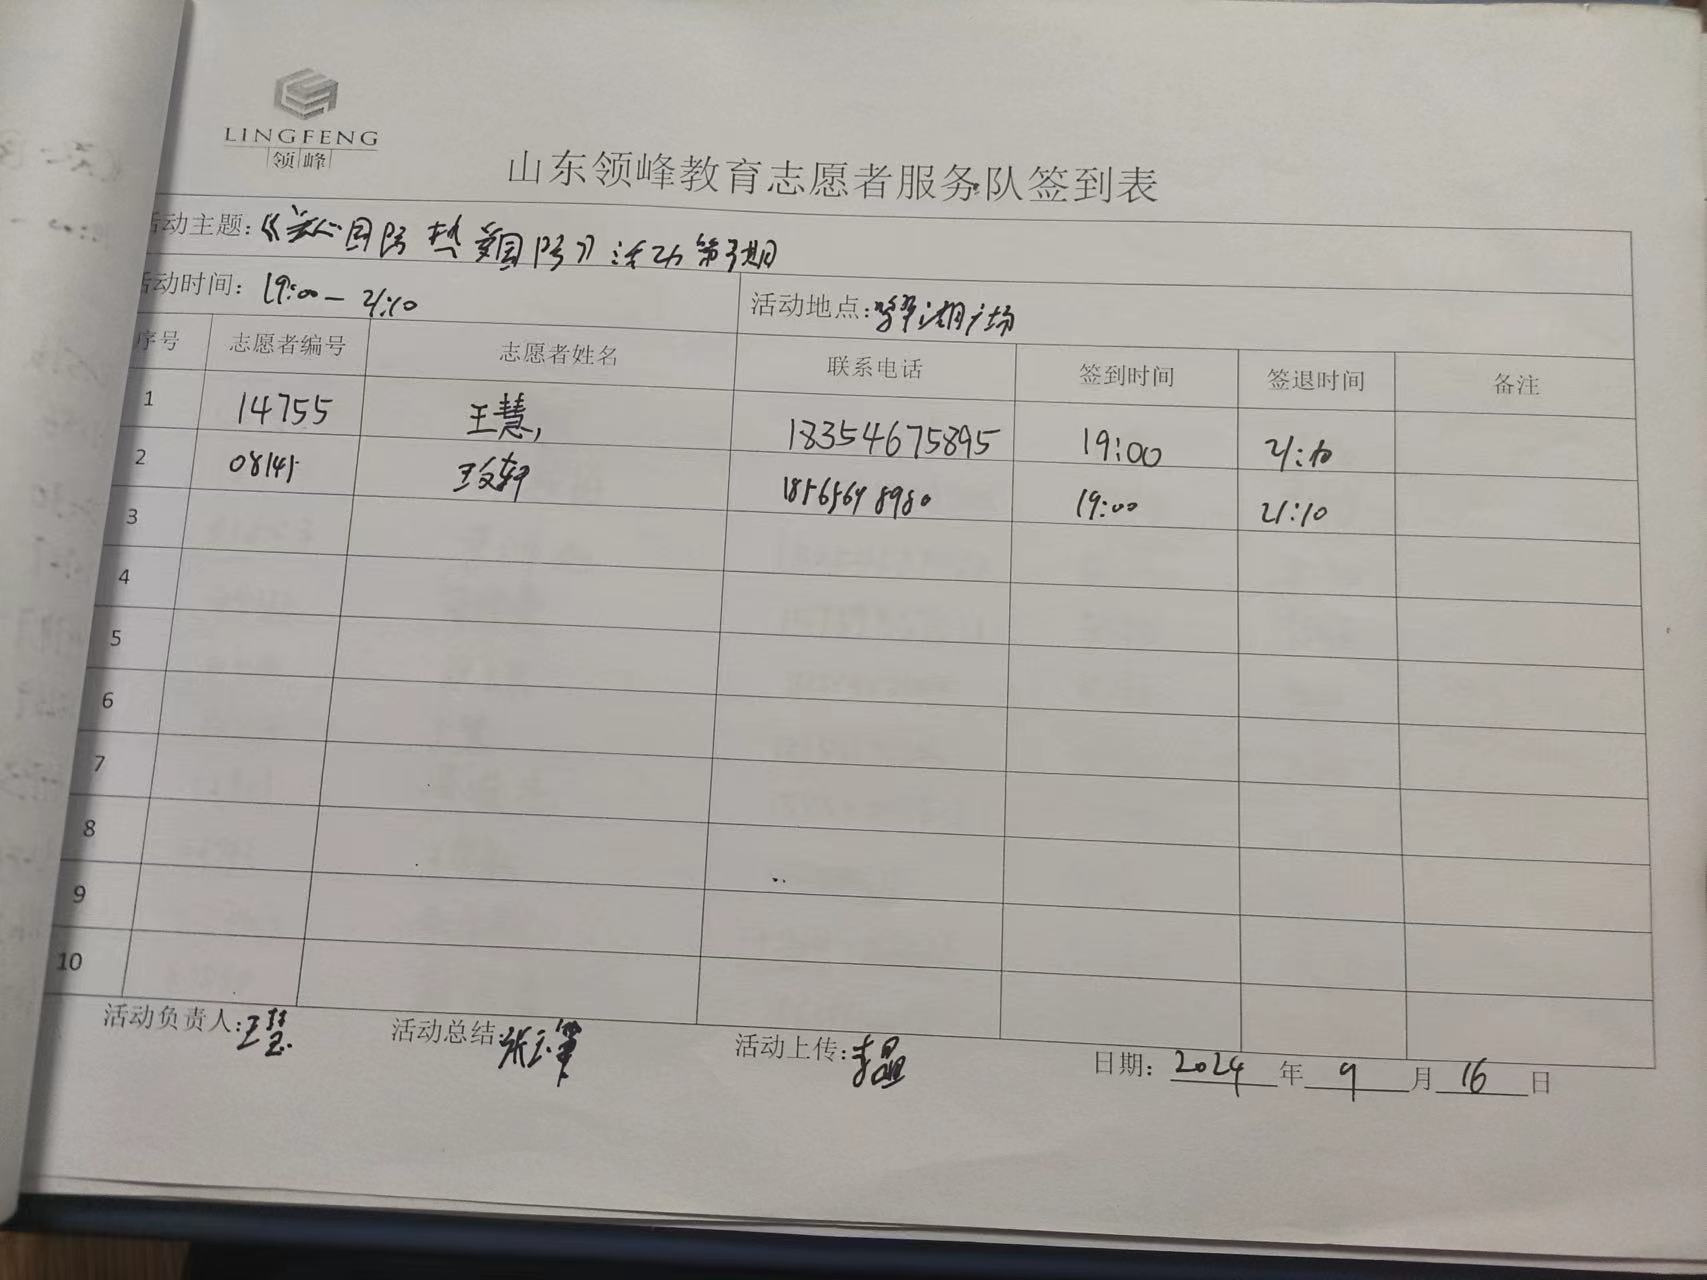 LINGFENG
领峰
山东领峰教育志愿者服务队签到表
活动主题:《关心国防 热爱国防》活动第3期
活动时间: 19:00-21:10 活动地点: 湖广场
序号 志愿者编号 志愿者姓名 联系电话 签到时间 签退时间 备注
1 14755 王慧, 18354675895 19:00 21:10
2 08141 王文轩 19:00 21:10
3
4
5
6
7
8
9
10
活动负责人: 王慧 活动总结: 张 活动上传: 李 日期: 2024 年 9 月 16 日